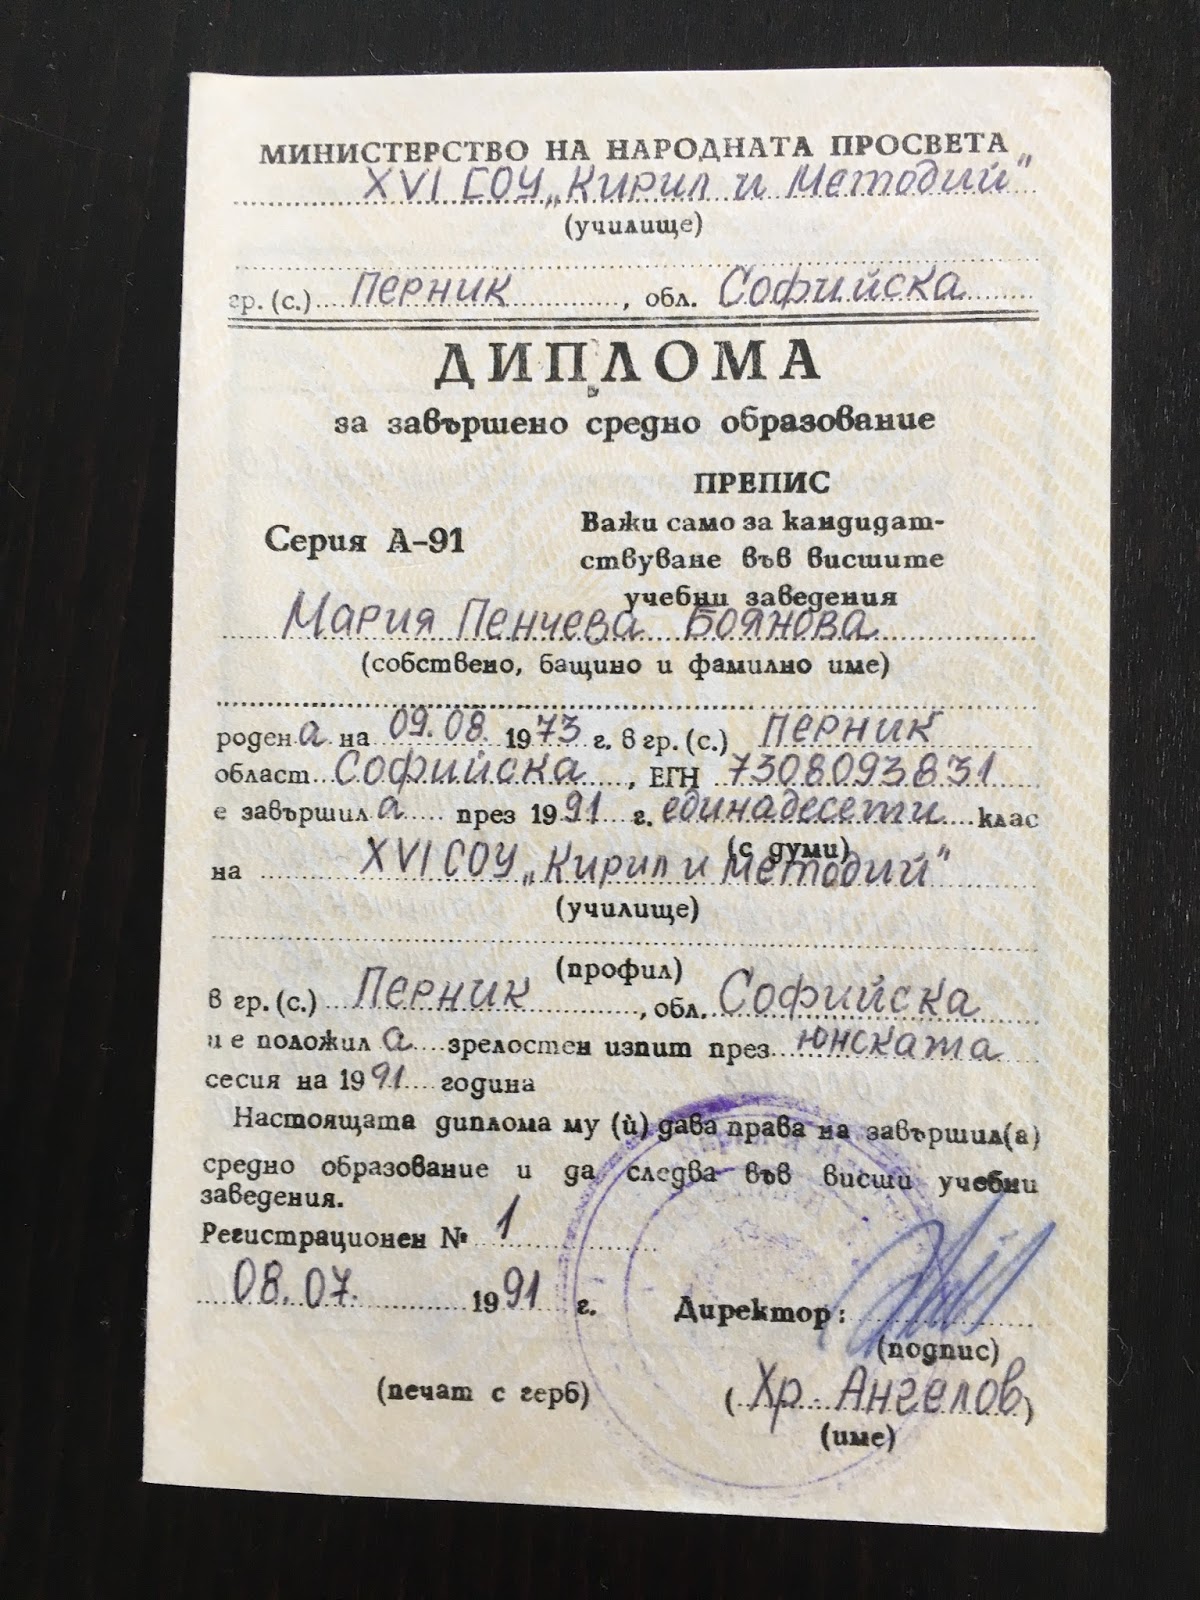 МИНИСТЕРСТВО НА НАРОДНАТА ПРОСВЕТА
XVI СОУ „Кирил и Методий"
(училище)
гр. (с.) Перник, обл. Софийска
ДИПЛОМА
за завършено средно образование
ПРЕПИС
Важи само за кандидат-
Серия А-91
ствуване във висшите
учебни заведения
Мария Пенчева Боянова
(собствено, бащино и фамилно име)
родена на 09.08. 1973 г. в гр. (с.) Перник
област Софийска, ЕГН 7308093831
е завършила през 1991 г. единадесети клас
(с думи)
на XVI СОУ „Кирил и Методий"
(училище)
(профил)
в гр. (с.) Перник, обл. Софийска
и е положила зрелостен изпит през юнската
сесия на 1991 година
Настоящата диплома му (ѝ) дава права на завършил(а)
средно образование и да следва във висши учебни
заведения.
Регистрационен № 1
08.07. 1991 г.
Директор:
(подпис)
(печат с герб)
(Хр. Ангелов)
(име)